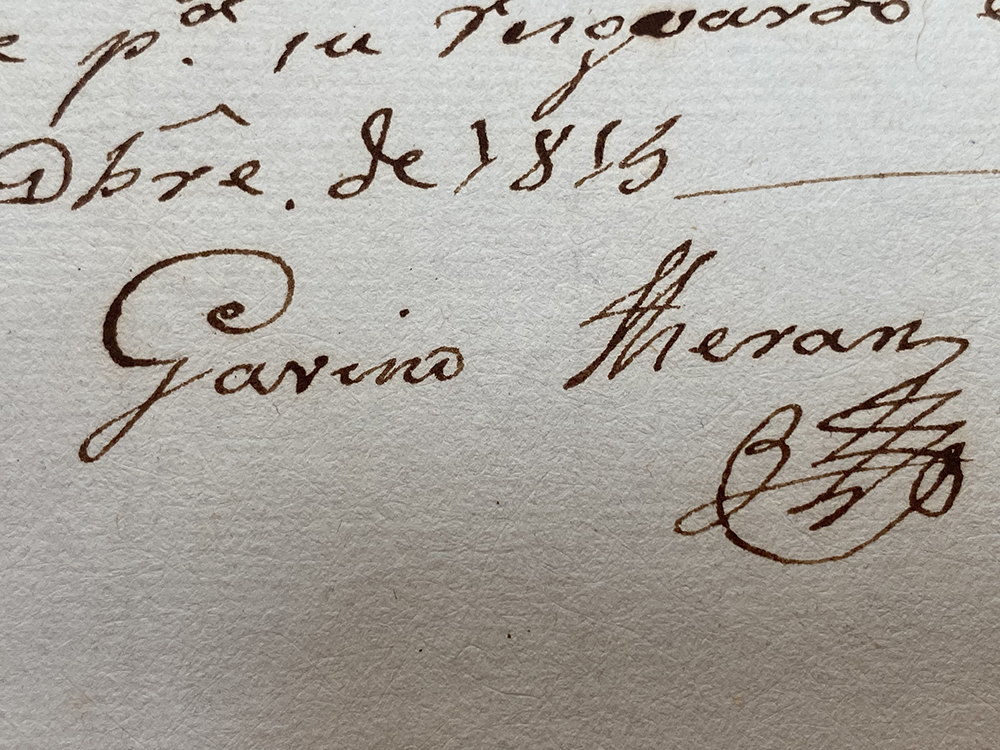 p.ª su resguardo
Dbrê. de 1815
Gavino Theran